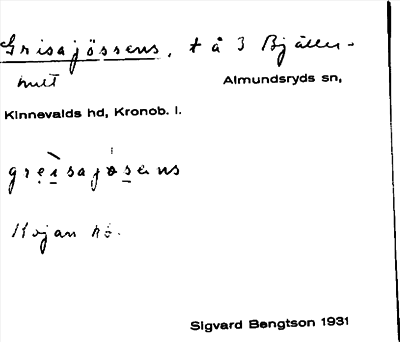 Grisajössens, t å 3 Bjäller-
hult
Almundsryds sn,
Kinnevalds hd, Kronob. l.
Kojan hö.
Sigvard Bengtson 1931